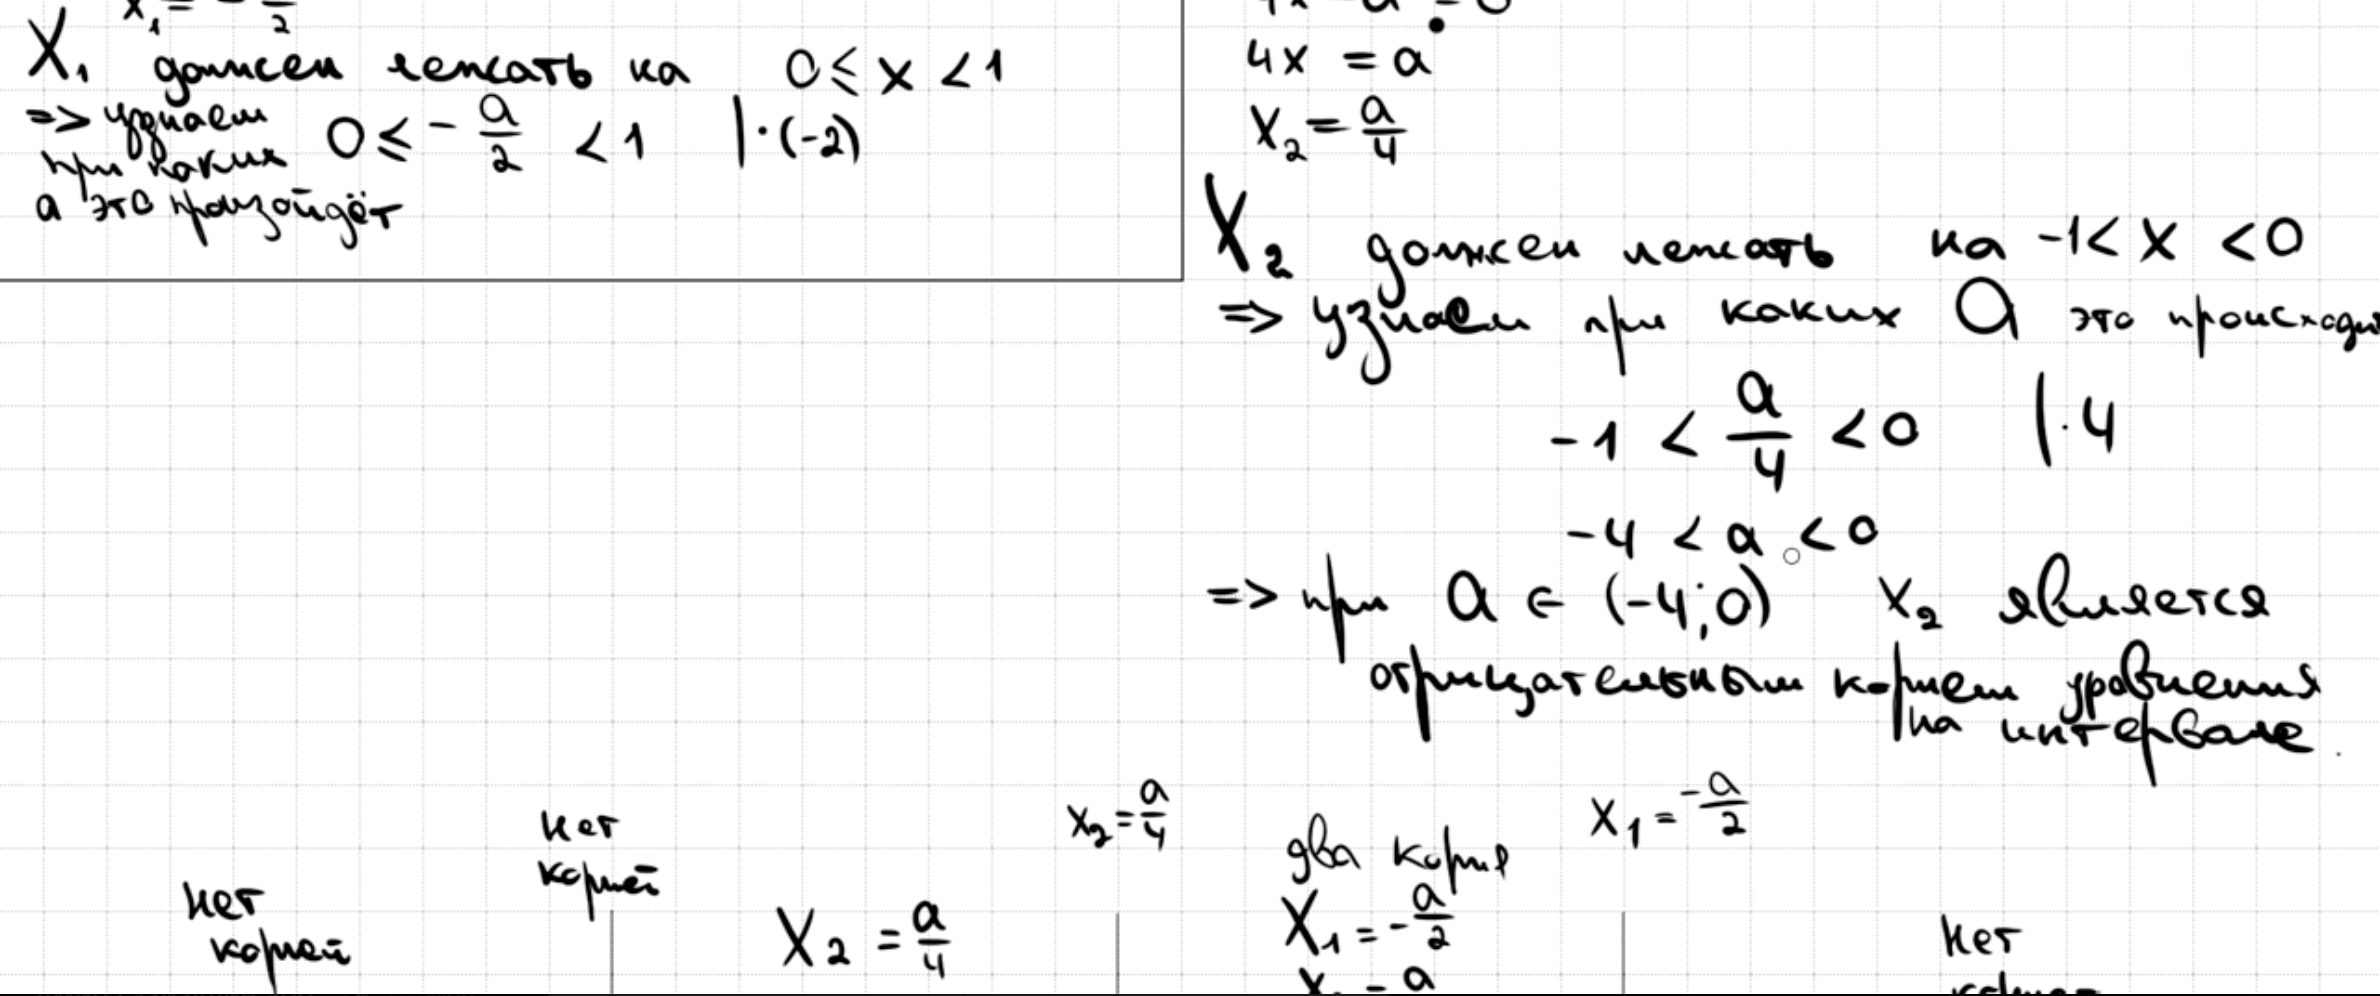 x₁ = - /2
X₁ должен лежать на 0 ≤ x < 1
=> узнаем
при каких
а это произойдёт
0 ≤ - a/2 < 1 | · (-2)
4x = a
x₂ = a/4
X₂ должен лежать на -1 < x < 0
=> узнаем при каких a это происходи
-1 < a/4 < 0 | · 4
-4 < a < 0
=> при a ∈ (-4; 0) x₂ является
отрицательным корнем уравнения
на интервале.
нет
корней
нет
корней
X₂ = a/4
x₂ = a/4
два корня
X₁ = - a/2
x₁ = -a/2
нет